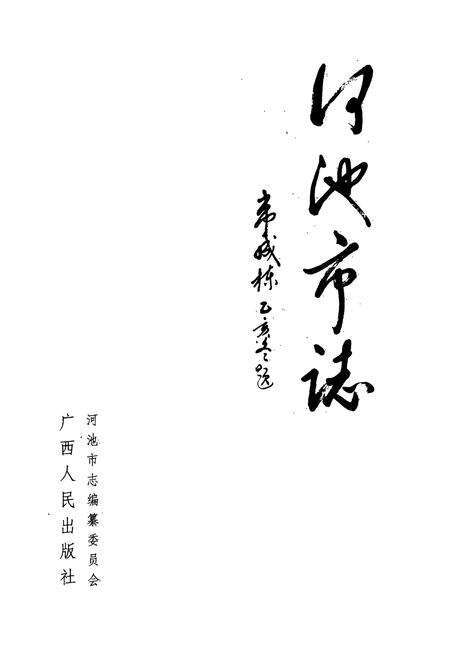 河池市誌
成栋乙亥冬题
河池市志编纂委员会
广西人民出版社